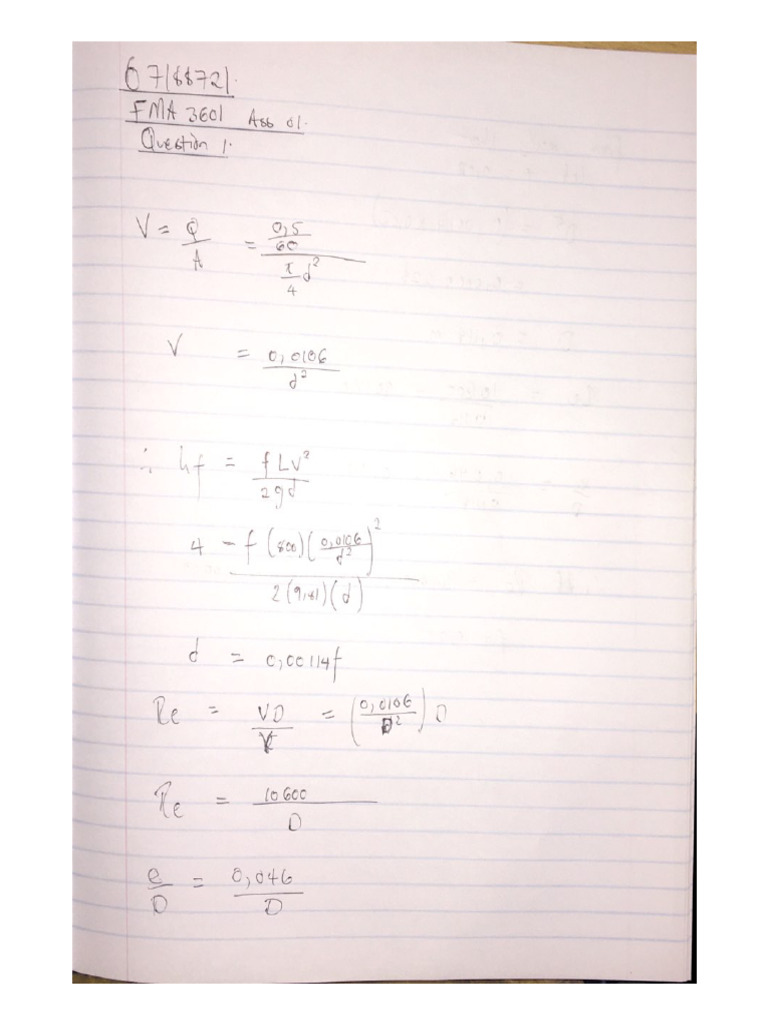 67188721.
FMA 3601 Ass 01.
Question 1.
V = Q/A = (0,5/60)/(π/4 d²)
V = 0,0106/d²
∴ hf = fLV²/2gd
4 = f(800)(0,0106/d²)²/2(9,81)(d)
d = 0,00114f
Re = VD/V = (0,0106/D²)D
Re = 10600/D
e/D = 0,046/D